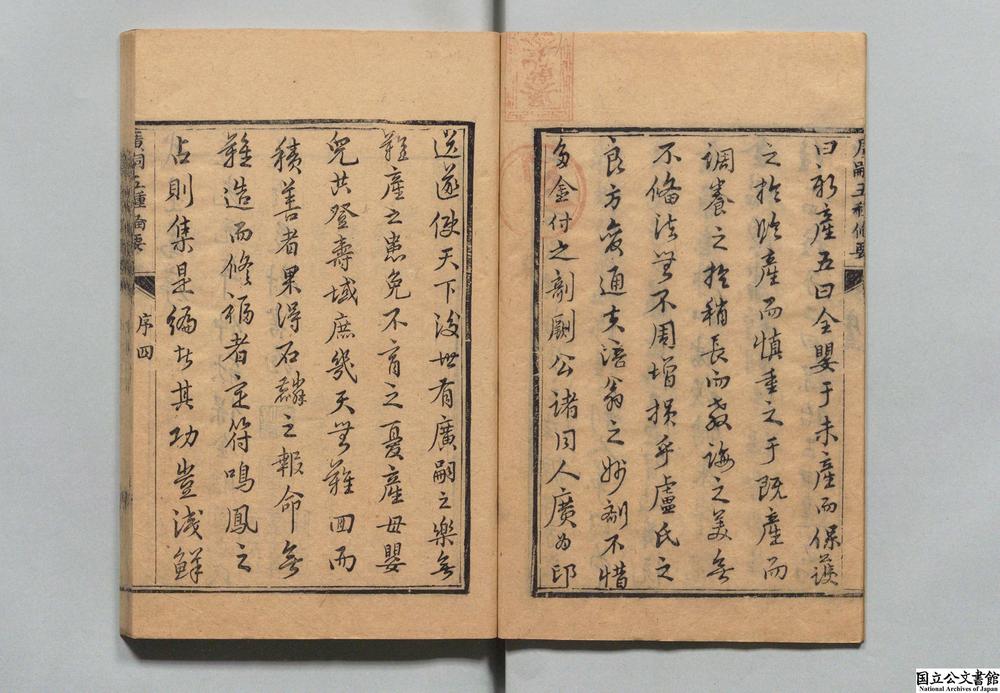 曰祈產五曰全嬰于未產而保護
之於臨產而慎重之于既產而
調養之於稍長而教誨之美無
不備法無不周增損乎盧氏之
良方變通夫語翁之妙劑不惜
多金付之剞劂公諸同人廣為印
送遂使天下後世有廣嗣之樂無
難產之患免不育之憂產母嬰
兒共登壽域庶幾天無難回而
積善者果得石麟之報命無
難造而修福者定符鳴鳳之
占則集是編者其功豈淺鮮
廣嗣五種備要
序四
国立公文書館
National Archives of Japan